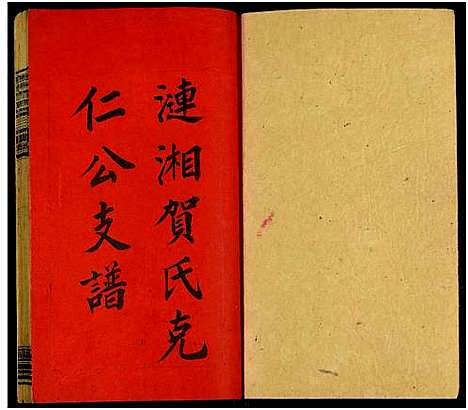 漣湘賀氏克
仁公支譜